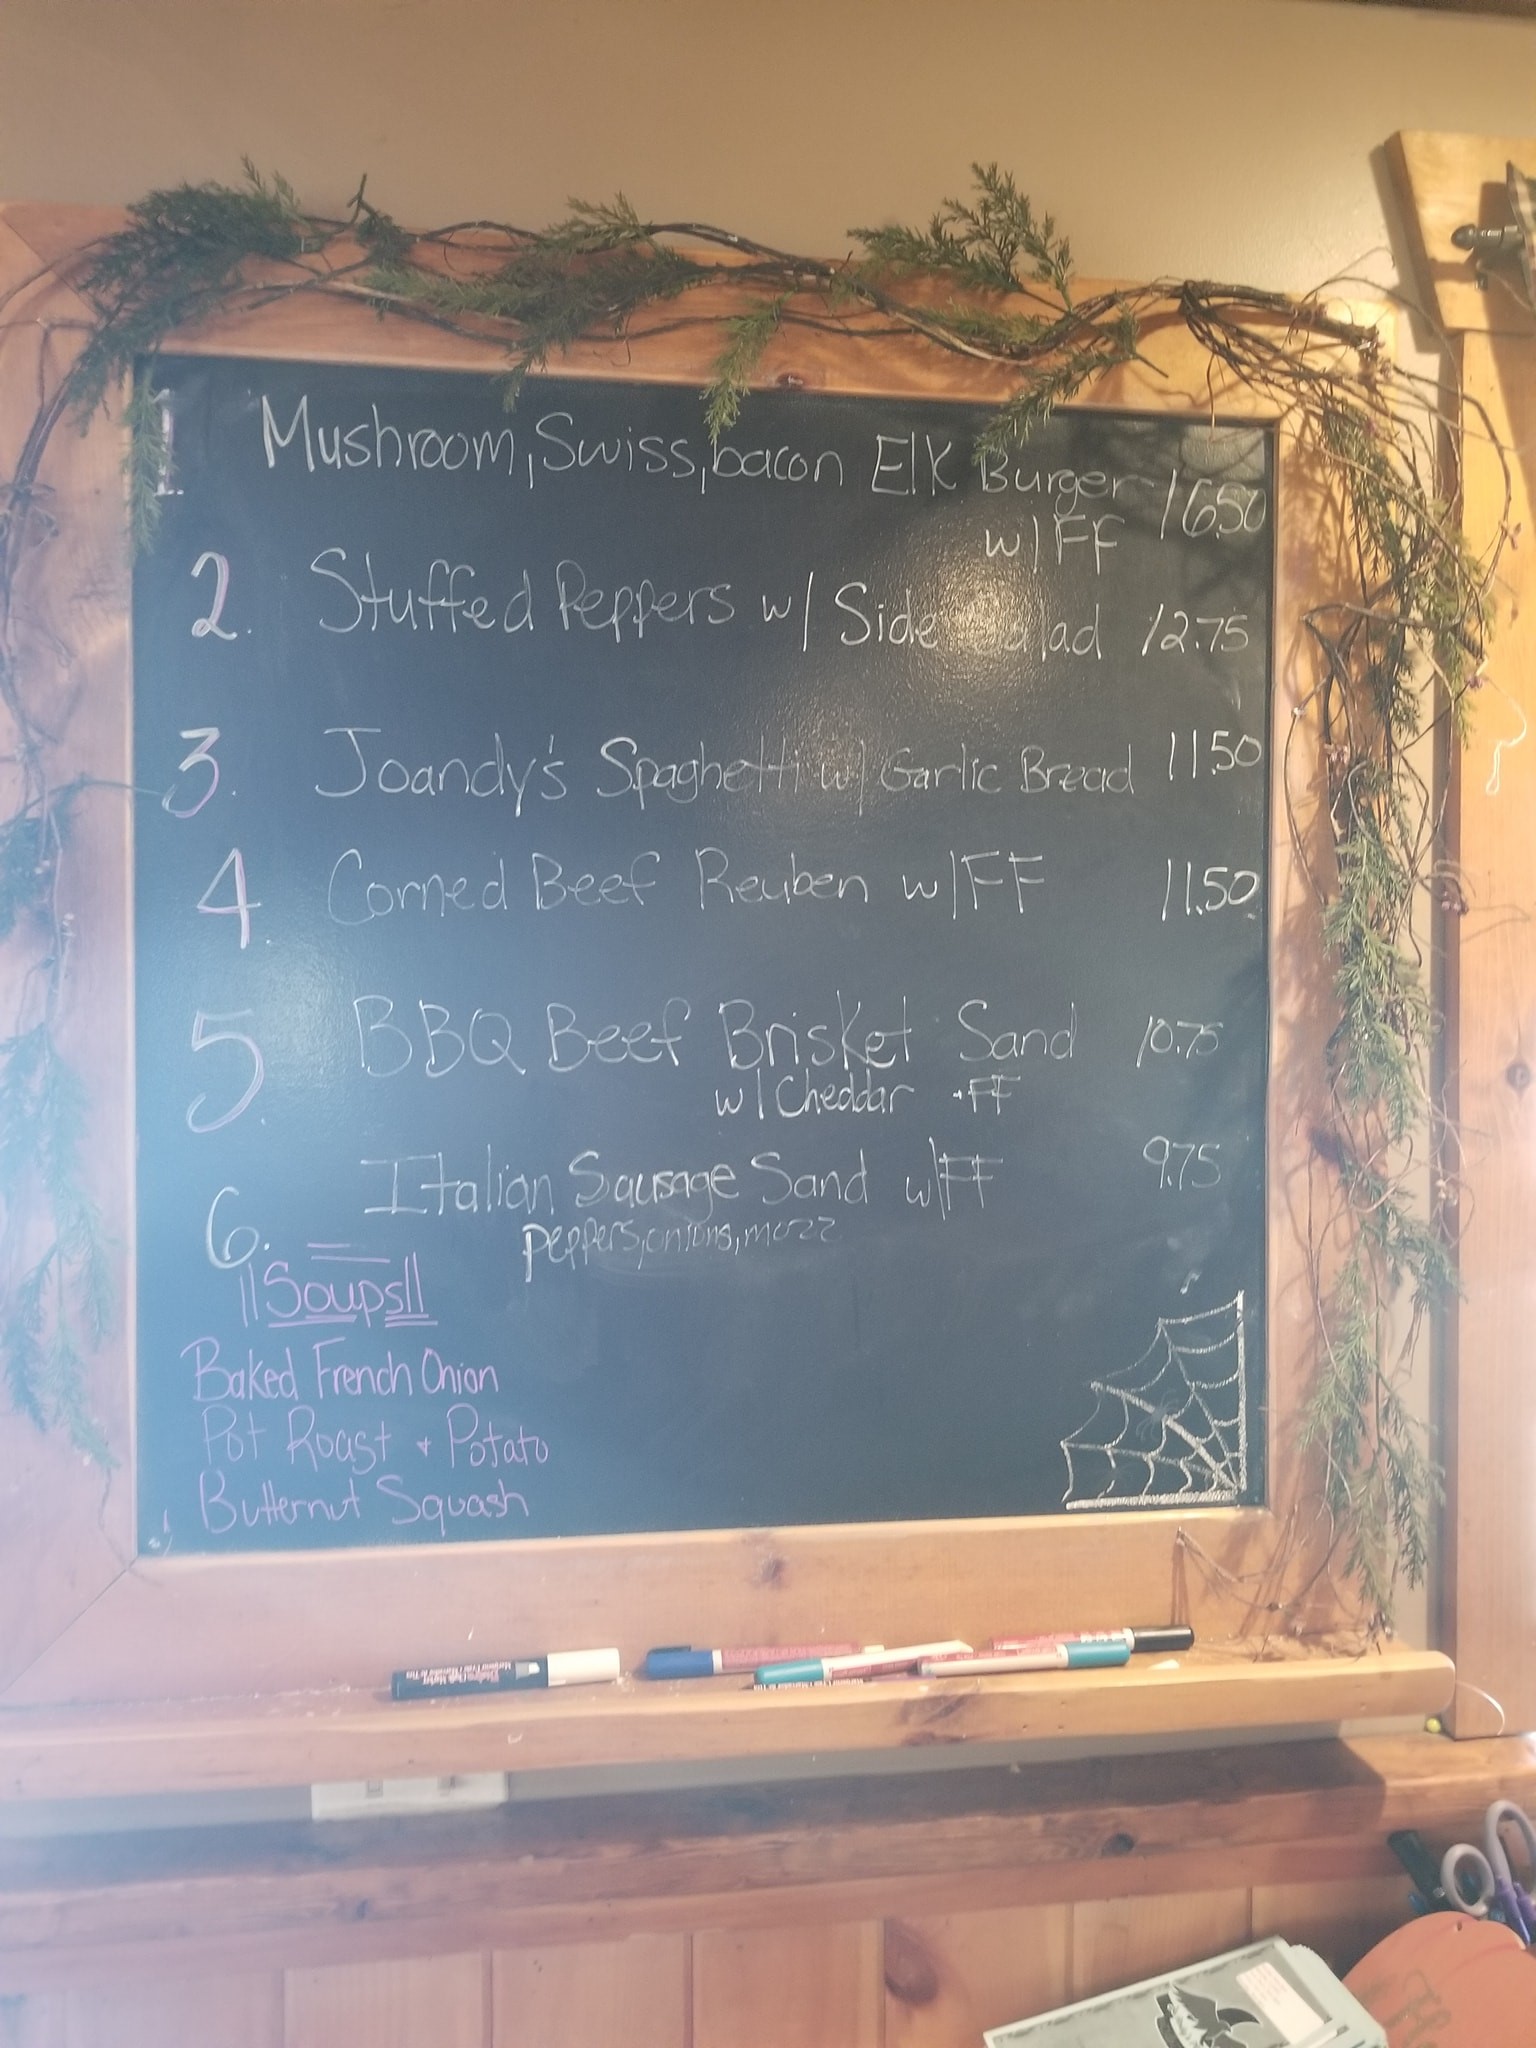 1. Mushroom, Swiss, bacon Elk Burger 16.50
w/ FF
2. Stuffed Peppers w/ Side Salad 12.75
3. Joandy's Spaghetti w/ Garlic Bread 11.50
4. Corned Beef Reuben w/ FF 11.50
5. BBQ Beef Brisket Sand 10.75
w/ Cheddar + FF
6. Italian Sausage Sand w/ FF 9.75
peppers, onions, mozz
Soups
Baked French Onion
Pot Roast + Potato
Butternut Squash